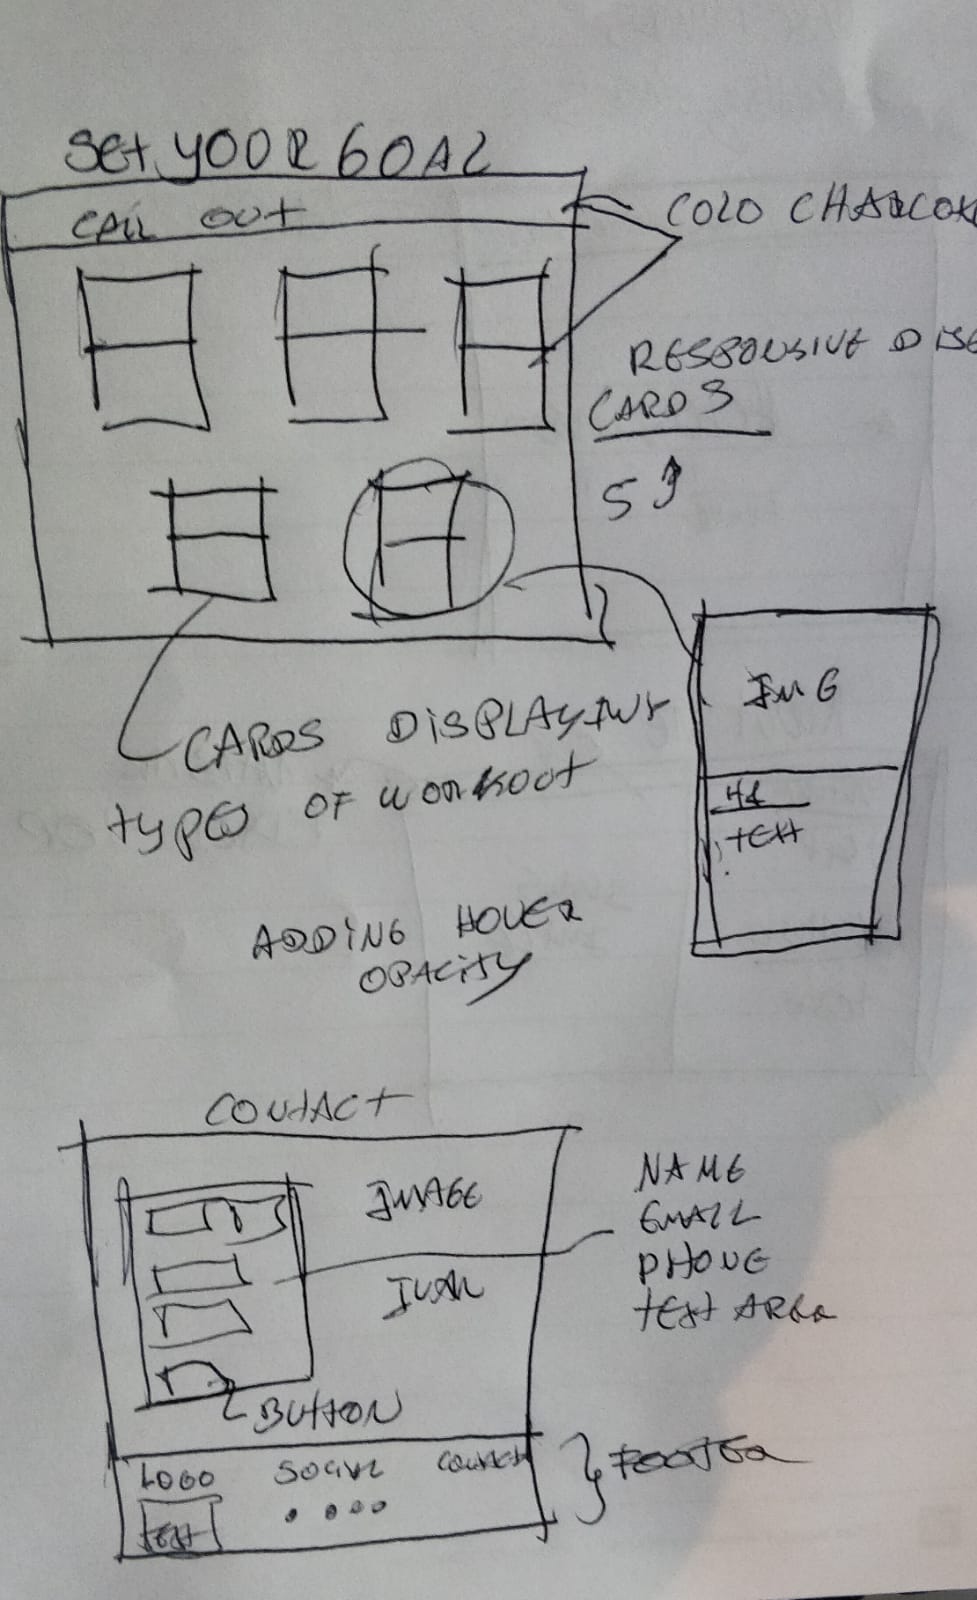 Set YOUR GOAL
CALL OUT
COLO CHARCOA
RESPONSIVE DIS
CARDS
5
IMG
TEXT
CARDS DISPLAYING
TYPES OF WORKOUT
ADDING HOVER
OPACITY
CONTACT
IMAGE
NAME
EMAIL
PHONE
TEXT AREA
BUTTON
LOGO SOCIAL CONTACT
TEXT
FOOTER